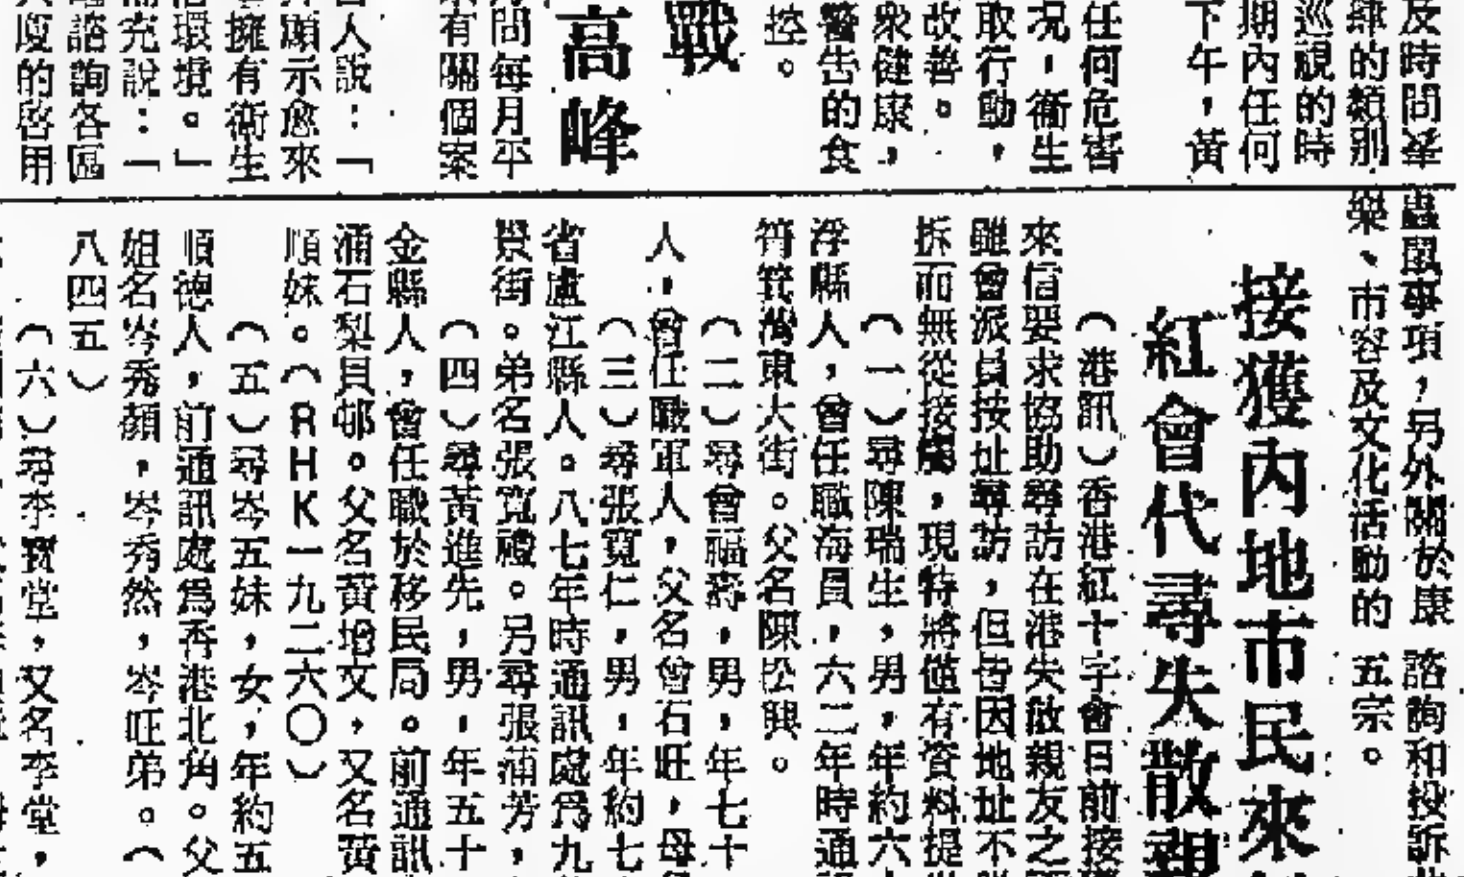 及時間華
肆的類別
巡視的時
期內任何
下午，黃
任何危害
况，衞生
取行動，
改善。
衆健康，
警告的食
控。
戰
高峰
問每月平
有關個案
人說：「
顯示愈來
擁有衞生
環境。」
充說：「
諮詢各區
廈的啓用
蟲鼠事項，另外關於康
樂、市容及文化活動的
諮詢和投訴
五宗。
接獲內地市民來
紅會代尋失散親
（港訊）香港紅十字會日前接
來信要求協助尋訪在港失散親友之
雖曾派員按址尋訪，但皆因地址不
拆而無從接觸，現特將僅有資料提
（一）尋陳瑞生，男，年約六
浮縣人，曾任職海員，六二年時通
筲箕灣東大街。父名陳松興。
（二）尋曾福壽，男，年七十
人，曾任職軍人，父名曾石旺，母
（三）尋張寬仁，男，年約七
省盧江縣人。八七年時通訊處爲九
景街。弟名張寬禮。另尋張蒲芳，
（四）尋黃進先，男，年五十
金縣人，曾任職於移民局。前通訊
涌石梨貝邨。父名黃增文，又名黃
順妹。（RHK一九二六〇）
（五）尋岑五妹，女，年約五
順德人，前通訊處爲香港北角。父
姐名岑秀顏，岑秀然，岑旺弟。（
八四五）
（六）尋李寶堂，又名李堂，